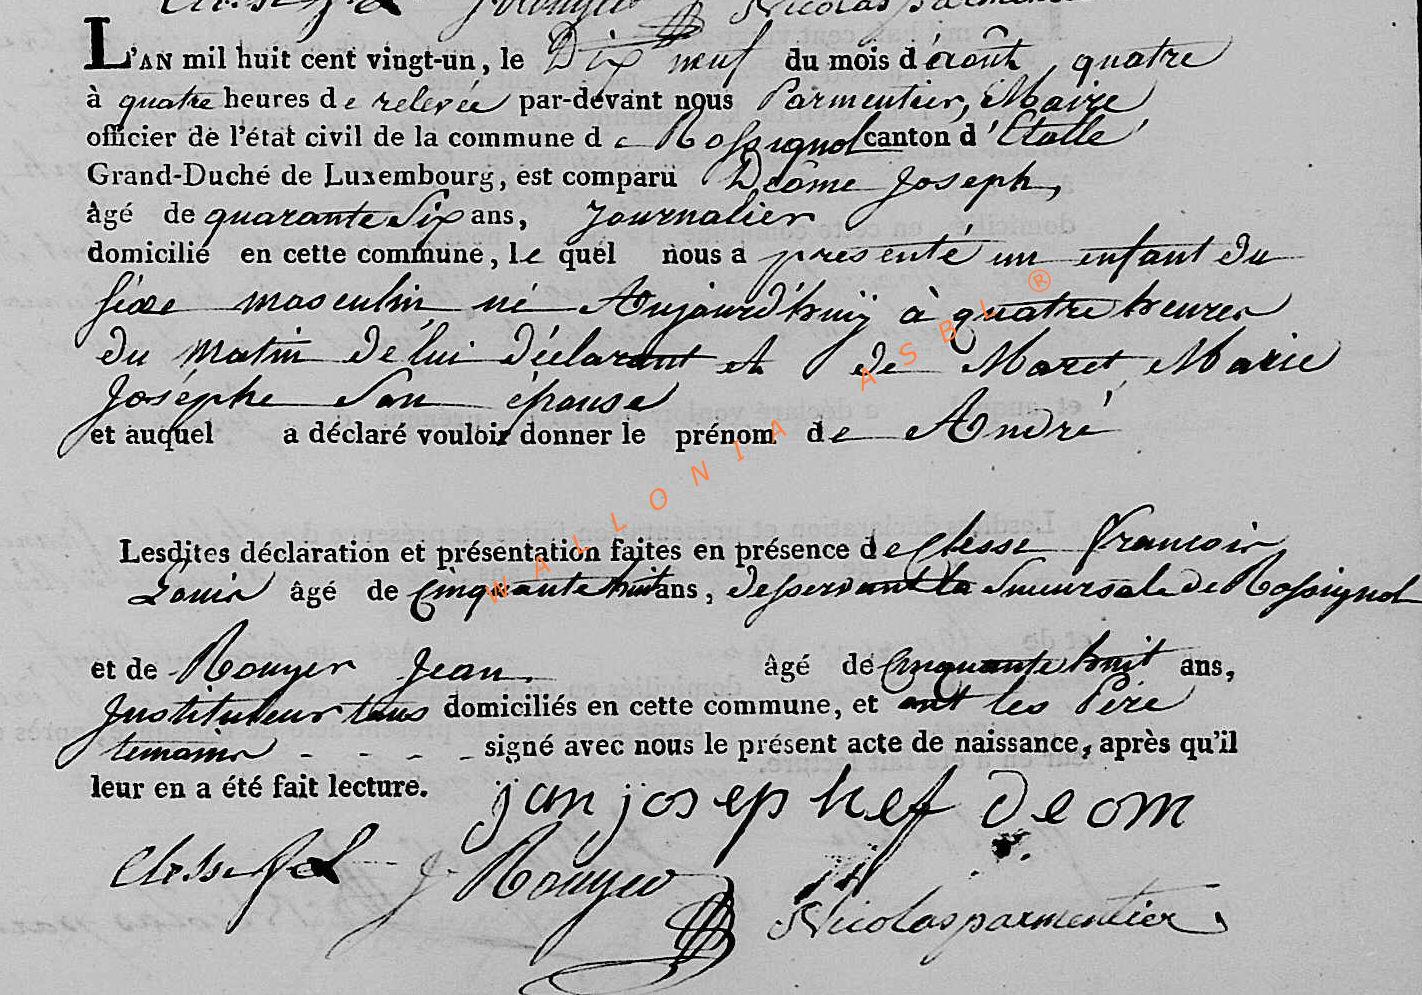 Nicolas parmentier
L'AN mil huit cent vingt-un, le Dix neuf du mois d'août, quatre
à quatre heures de relevée par-devant nous Parmentier, Maire
officier de l'état civil de la commune de Rossignol canton d'Etalle
Grand-Duché de Luxembourg, est comparu Déome Joseph,
âgé de quarante Six ans, Journalier
domicilié en cette commune, le quel nous a présenté un enfant du
Sexe masculin né Aujourd'huij à quatre heures
du Matin de lui déclarant et de Maret Marie
Joséphe Son épouse
et auquel a déclaré vouloir donner le prénom de André
Lesdites déclaration et présentation faites en présence de Clesse Francois
Louis âgé de Cinquante huit ans, desservant la Succursale de Rossignol
et de Rouyer Jean âgé de Cinquante huit ans,
Instituteur tous domiciliés en cette commune, et ont les Père
temoins - - - - signé avec nous le présent acte de naissance, après qu'il
leur en a été fait lecture. jan josephef deom
Clesse J Rouyer
Nicolas parmentier
WALLONIA ASBL ®